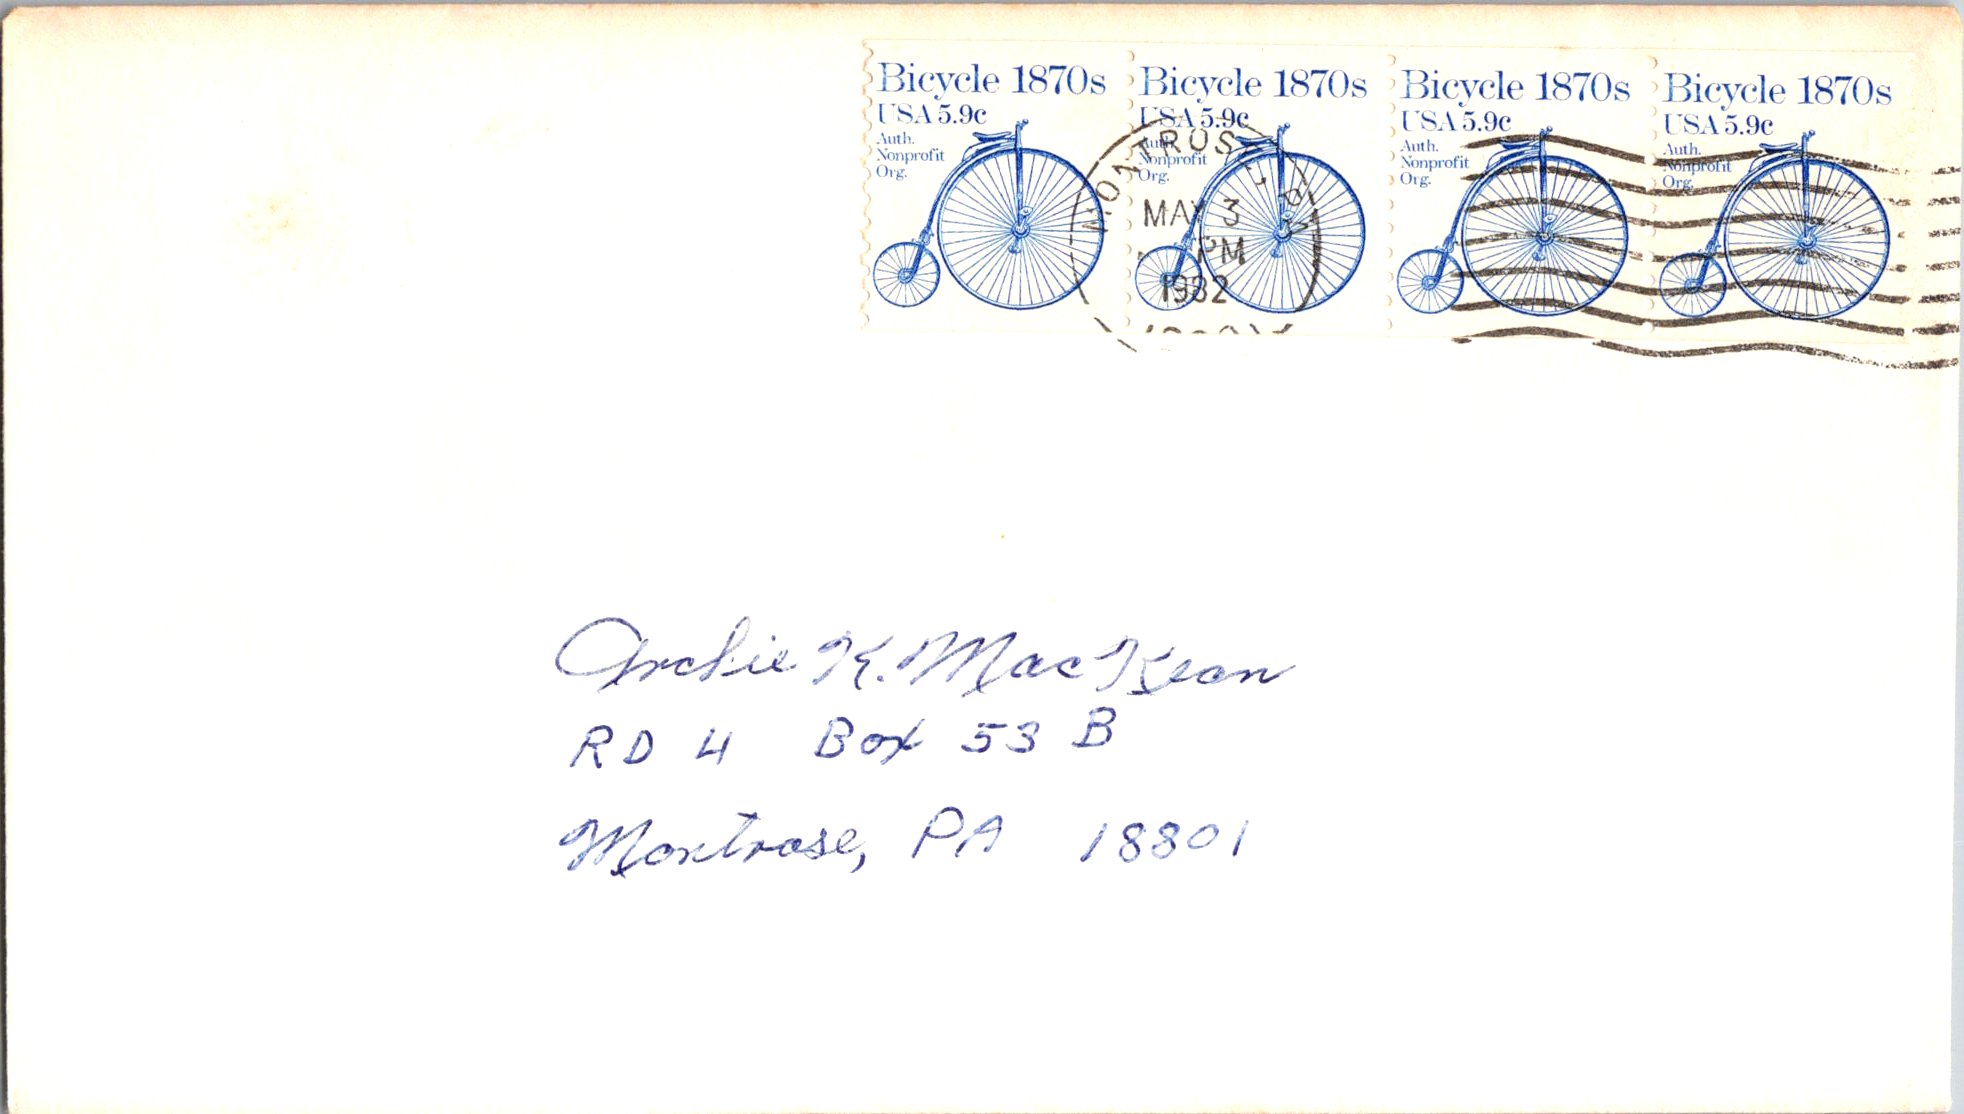 Bicycle 1870s
USA 5.9c
Auth.
Nonprofit
Org.
Bicycle 1870s
USA 5.9c
Auth.
Nonprofit
Org.
Bicycle 1870s
USA 5.9c
Auth.
Nonprofit
Org.
Bicycle 1870s
USA 5.9c
Auth.
Nonprofit
Org.
MONTROSE, PA
MAY 3
PM
1982
Archie K. MacKean
RD 4 Box 53 B
Montrose, PA 18801